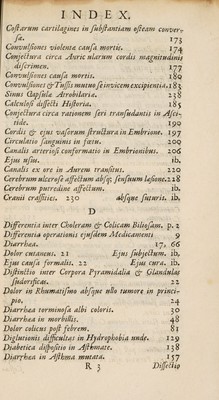 INDEX.
Costarum cartilagines in substantiam osteam conversa. 173
Convulsiones violenta causa mortis. 174
Conjectura circa Auricularum cordis magnitudinis discrimen. 177
Convulsiones causa mortis. 180
Convulsiones & Tussis mutuo se invicem excipientia. 183
Sinus Capsulæ Atrobilaria. 238
Calculosi dissecti Historia. 185
Conjectura circa rationem seri transudantis in Ascitide. 190
Cordis & ejus vasorum structura in Embrione. 197
Circulatio sanguinis in fœtu. 200
Canalis arteriosi conformatio in Embrionibus. 206
Ejus usus. ib.
Canalis ex ore in Aurem transitus. 220
Cerebrum ulceroso affectum absq; sensuum læsione. 228
Cerebrum putredine affectum. ib.
Cranii crassities. 230 absque suturis. ib.
D
Differentia inter Choleram & Colicam Biliosam. p. 2
Differentia operationis ejusdem Medicamenti 9
Diarrhœa. 17, 66
Dolor cutaneus. 21 Ejus subjectum. ib.
Ejus causa formalis. 22 Ejus cura. ib.
Distinctio inter Corpora Pyramidalia & Glandulas
sudorificas. 22
Dolor in Rhumatismo absque ullo tumore in principio. 24
Diarrhœa torminosa albi coloris. 30
Diarrhœa in morbillis. 48
Dolor colicus post febrem. 81
Diglutionis difficultas in Hydrophobia unde. 129
Diabetica dispositio in Asthmate. 138
Diarrhœa in Asthma mutata. 157
R 3 Dissectio